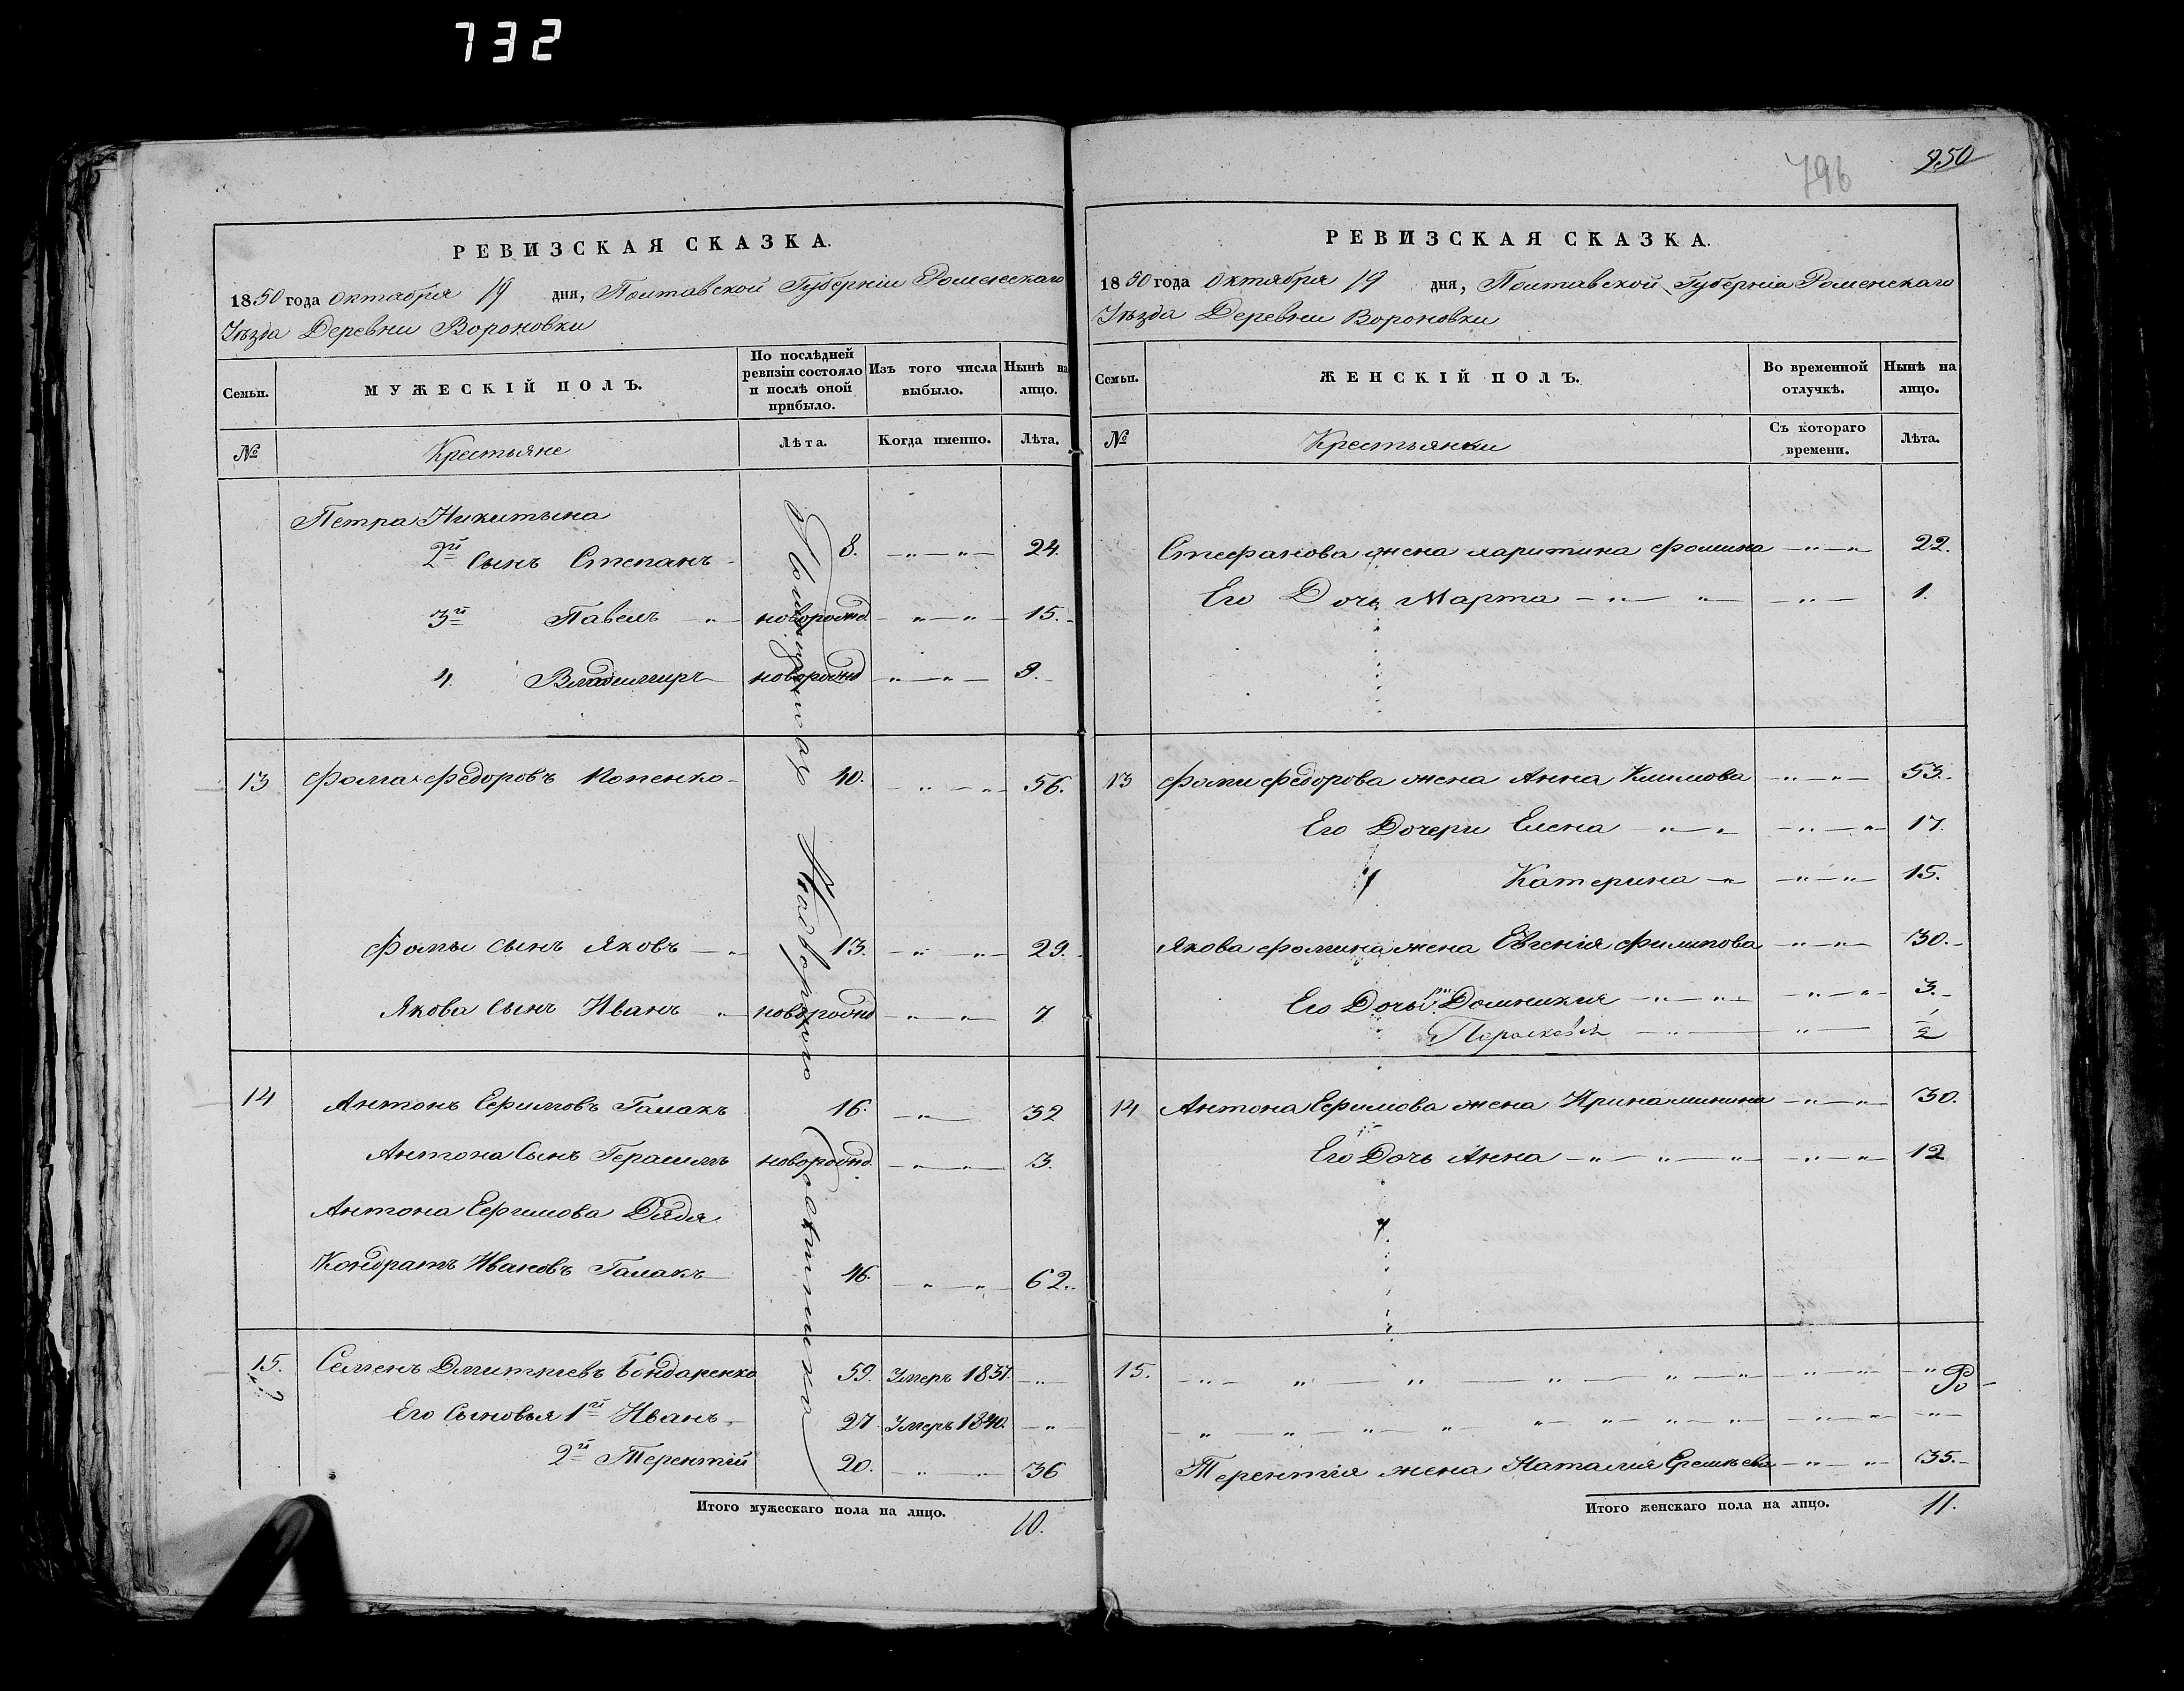 732
РЕВИЗСКАЯ СКАЗКА.
1850 года Октября 19 дня, Полтавской Губернiи Роменскаго
Уѣзда Деревни Вороновки
Семьи.
МУЖЕСКІЙ ПОЛЪ.
По послѣдней ревизіи состояло и послѣ оной прибыло.
Изъ того числа выбыло.
Нынѣ на лицо.
№
Крестьяне
Лѣта.
Когда именно.
Лѣта.
Петра Никитина
2й Сынъ Степанъ 8. 24.
3й Павелъ новорожд. 15.
4. Владимиръ новорожд 9.
13 Фома Федоровъ Копенко 40. 56.
Фомы сынъ Яковъ 13. 29.
Якова Сынъ Иванъ новорожд 7
14 Антонъ Ефимовъ Галакъ 16. 32
Антона Сынъ Герасимъ новорожд. 3.
Антона Ефимова Дядя
Кондратъ Ивановъ Галакъ 46. 62.
15. Семенъ Дмитріевъ Бондаренко 59. Умеръ 1837.
Его Сыновья 1й Иванъ 27. Умеръ 1840.
2й Терентій 20. 36
Итого мужескаго пола на лицо. 10.
796
950
РЕВИЗСКАЯ СКАЗКА.
1850 года Октября 19 дня, Полтавской Губерніи Роменскаго
Уѣзда Деревни Вороновки
Семьи.
ЖЕНСКІЙ ПОЛЪ.
Во временной отлучкѣ.
Нынѣ на лицо.
№
Крестьянки
Съ котораго времени.
Лѣта.
Стефанова жена Фомина 22.
Его Дочь Марта 1.
13 Фомы Федорова жена Анна Климова 53.
Его Дочери Елена 17.
Катерина 15.
Якова Фомина жена Евгенія Филипова 30.
Его Дочь Домникия 3.
Парасковія ½
14 Антона Ефимова жена Ирина минина 30.
Его Дочь Анна 12
15.
Терентія жена Наталия 35.
Итого женскаго пола на лицо. 11.